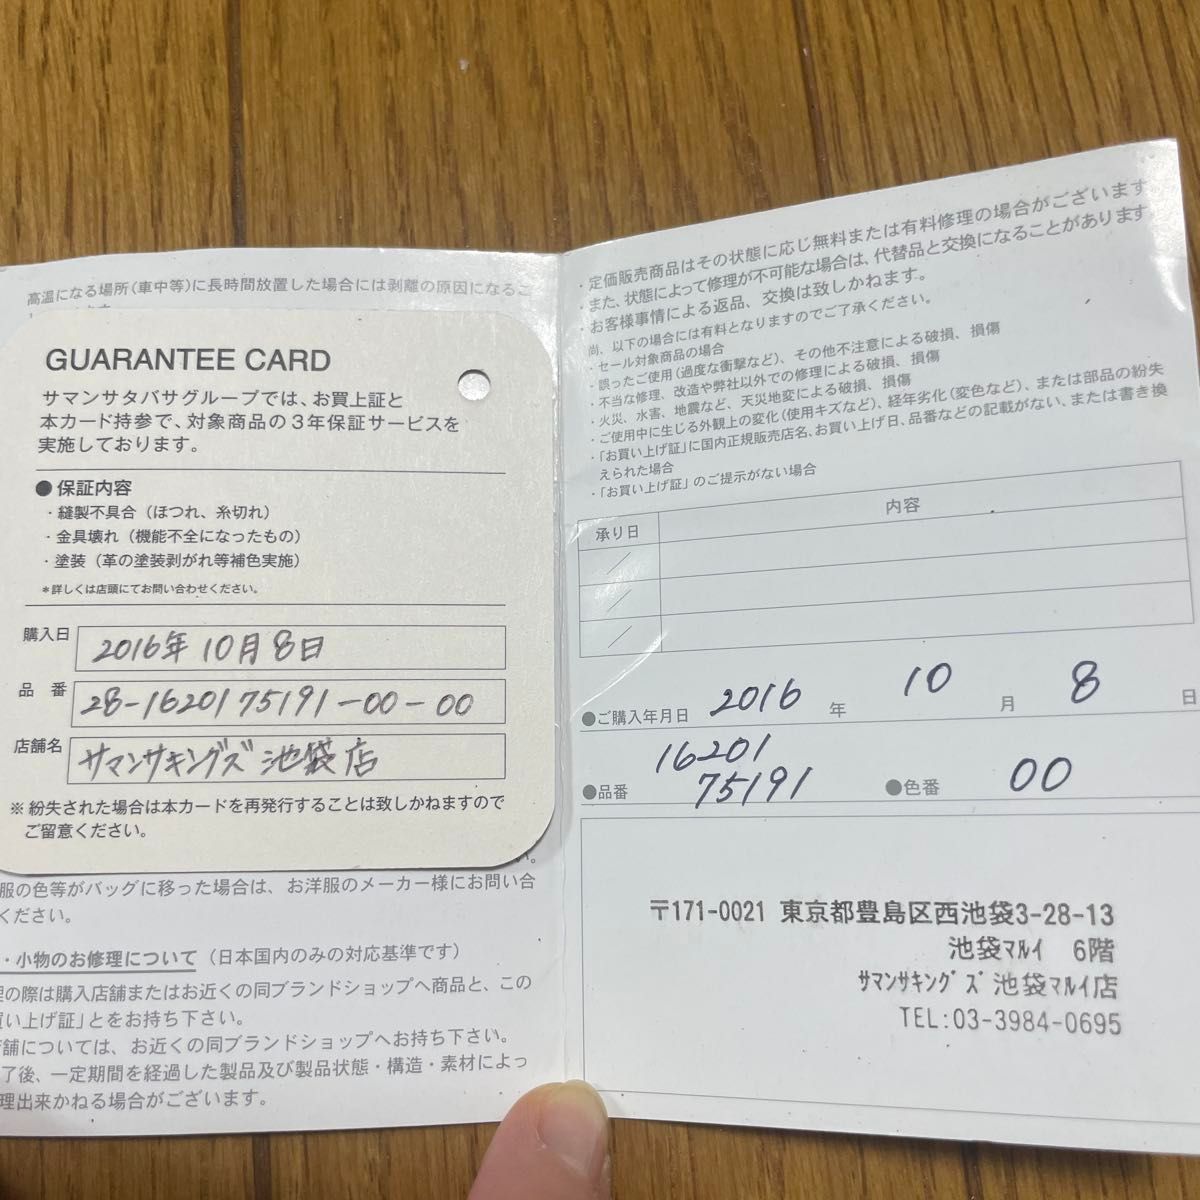 高温になる場所(車中等)に長時間放置した場合には剥離の原因になるこ
GUARANTEE CARD
サマンサタバサグループでは、お買上証と
本カード持参で、対象商品の3年保証サービスを
実施しております。
●保証内容
・縫製不具合(ほつれ、糸切れ)
・金具壊れ(機能不全になったもの)
・塗装(革の塗装剥がれ等補色実施)
*詳しくは店頭にてお問い合わせください。
購入日 2016年10月8日
品番 28-1620175191-00-00
店舗名 サマンサキングズ 池袋店
※紛失された場合は本カードを再発行することは致しかねますので
ご留意ください。
服の色等がバッグに移った場合は、お洋服のメーカー様にお問い合
ください。
・小物のお修理について(日本国内のみの対応基準です)
理の際は購入店舗またはお近くの同ブランドショップへ商品と、この
買い上げ証」とをお持ち下さい。
店舗については、お近くの同ブランドショップへお持ち下さい。
了後、一定期間を経過した製品及び製品状態・構造・素材によっ
理出来かねる場合がございます。
・定価販売商品はその状態に応じ無料または有料修理の場合がございます
・また、状態によって修理が不可能な場合は、代替品と交換になることがあります
・お客様事情による返品、交換は致しかねます。
尚、以下の場合には有料となりますのでご了承ください。
・セール対象商品の場合
・誤ったご使用(過度な衝撃など)、その他不注意による破損、損傷
・不当な修理、改造や弊社以外での修理による破損、損傷
・火災、水害、地震など、天災地変による破損、損傷
・ご使用中に生じる外観上の変化(使用キズなど)、経年劣化(変色など)、または部品の紛失
・「お買い上げ証」に国内正規販売店名、お買い上げ日、品番などの記載がない、または書き換
えられた場合
・「お買い上げ証」のご提示がない場合
承り日 内容
/
/
/
●ご購入年月日 2016 年 10 月 8 日
●品番 16201
75191 ●色番 00
〒171-0021 東京都豊島区西池袋3-28-13
池袋マルイ 6階
サマンサキングズ 池袋マルイ店
TEL:03-3984-0695